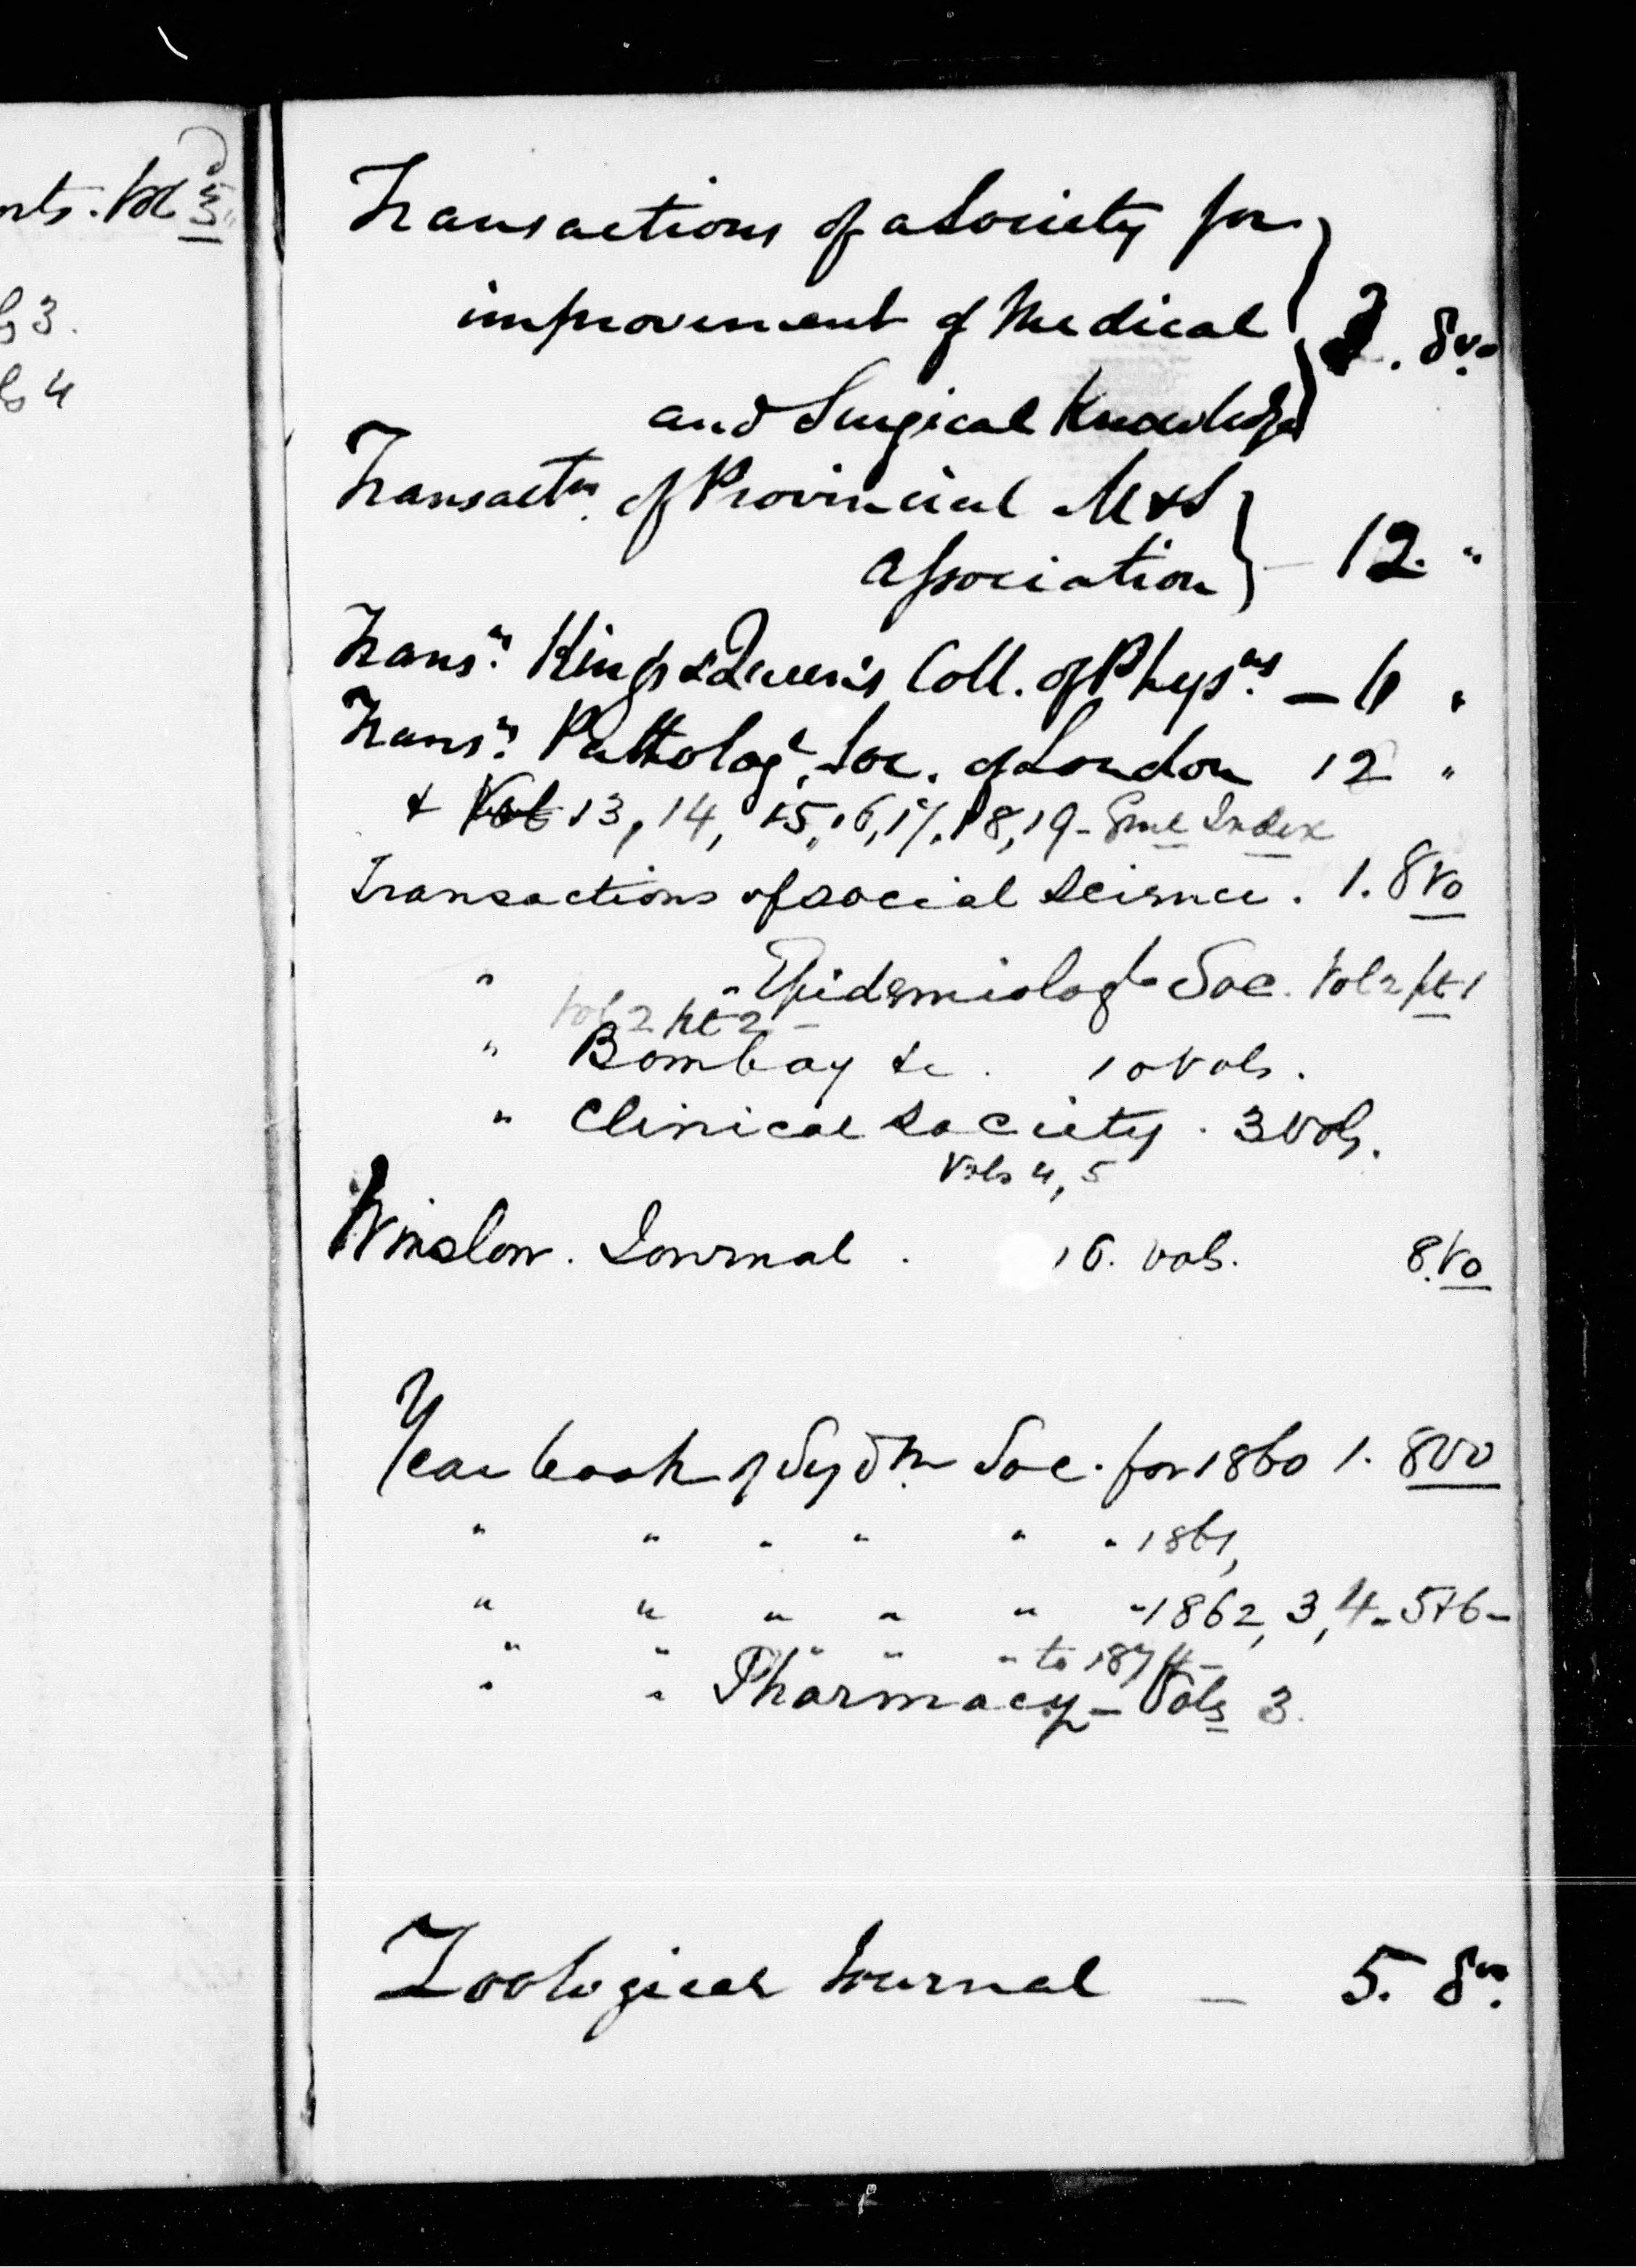 rts. Vol 5
ls 3.
ls 4
Transactions of a Society for
improvement of Medical
. 8vo
and Surgical Knowledge
Transactns. of Provincial M & S
Association } — 12. "
Transns. King's & Queen's Coll. of Physns. — 6 "
Transns. Patholog.l Soc. of London 12 "
& Vol 13, 14, 15, 16, 17, 18, 19 - Genl Index
Transactions of social science. 1. 8vo
" " Epidemiologl Soc. Vol 2 pt 1
Vol 2 pt 2 -
" Bombay &c. 10 Vols.
" Clinical society. 3 Vols.
Vols 4, 5
Winslow. Journal. 16. vols. 8.vo
Year book of Sydm. Soc. for 1860 1. 8vo
" " " " " " 1861,
" " " " " " 1862, 3, 4 - 5 + 6 -
" " " " " to 1874 -
" " Pharmacy - Vols 3.
Zoological Journal — 5. 8vo.